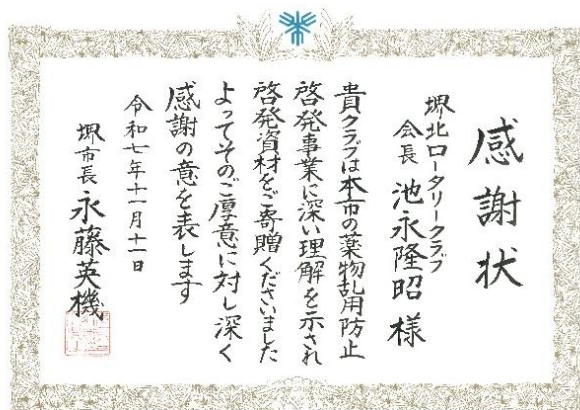 感謝状
堺北ロータリークラブ
会長 池永隆昭 様
貴クラブは本市の薬物乱用防止
啓発事業に深い理解を示され
啓発資材をご寄贈くださいました
よってそのご厚意に対し深く
感謝の意を表します
令和七年十一月十一日
堺市長 永藤英機